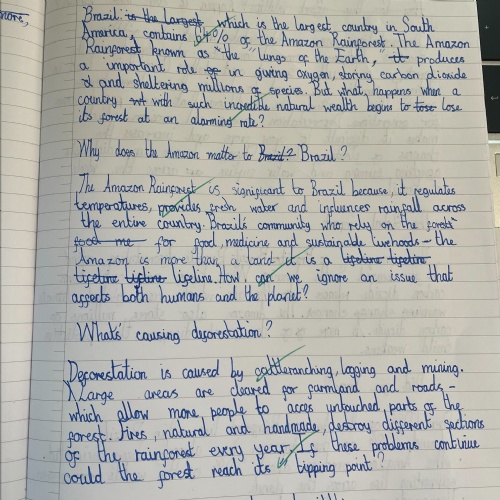 more,
Brazil: is the largest which is the largest country in South
America, contains 64% of the Amazon Rainforest. The Amazon
Rainforest known as "the "lungs of the Earth," it produces
a important role of in giving oxygen, storing carbon dioxide
& and sheltering millions of species. But what, happens when a
country not with such incredible natural wealth begins to lose lose
its forest at an alarming rate?
Why does the Amazon matter to Brazil? Brazil?
The Amazon Rainforest is significant to Brazil because, it regulates
temperatures, provides fresh water and influences rainfall across
the entire country. Brazil's community who rely on the forests
food me for food, medicine and sustainable livehoods - the
Amazon is more than a land it is a lifeline lifeline
lifeline lifline lifeline. How can we ignore an issue that
affects both humans and the planet?
What's causing deforestation?
Deforestation is caused by cattleranching, logging and mining.
Large areas are cleared for farmland and roads -
which allow more people to acces untouched parts of the
forest. Fires, natural and handmade, destroy different sections
of the rainforest every year. If these problems continue
could the forest reach its tipping point?